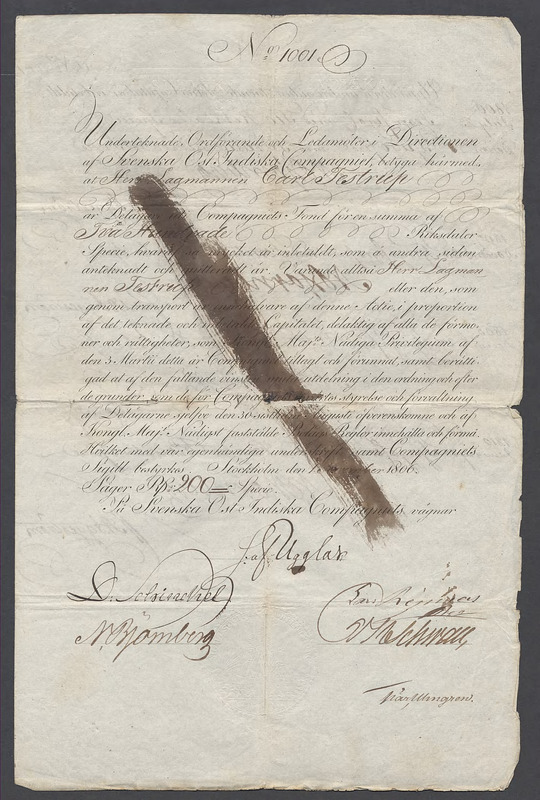 No 1001.
Underteknade, Ordförande och Ledamöter i Directionen
af Svenska Ost Indiska Compagniet, betyga härmed,
at Herr Lagmannen Carl Testrup
är Delägare i Compagniets Fond för en summa af
Två Hundrade Riksdaler
Specie, hvarå inbetaldt, som å andra sidan
antecknadt och quitteradt är. Varande altså Herr Lagman
nen Testrup eller den, som
genom transport innehavare af denne Actie, i proportion
af det teknade och Capitalet, delaktig af alla de förmo,
ner och rättigheter, som Kongl. Majts Nådiga Privilegium af
den 3 Martii detta år Compagniet tillagt och förunnat, samt berätti
gad at af den fallande vinsten utdelning i den ordning och efter
de grunder, som de för Compagniets styrelse och förvaltning
af Delägarne sjelfve den 30 sistl. öfverenskomne och af
Kongl. Majt Nådigst fastställte Reglor innehålla och förmå.
Hvilket med vår egenhändiga underskrift samt Compagniets
Sigill bestyrkes. Stockholm den 1806.
Säger Rdr 200 Specie.
På Svenska Ost Indiska Compagniets vägnar
S. af Ugglas
D. Schinckel
N. Björnberg
Schwan